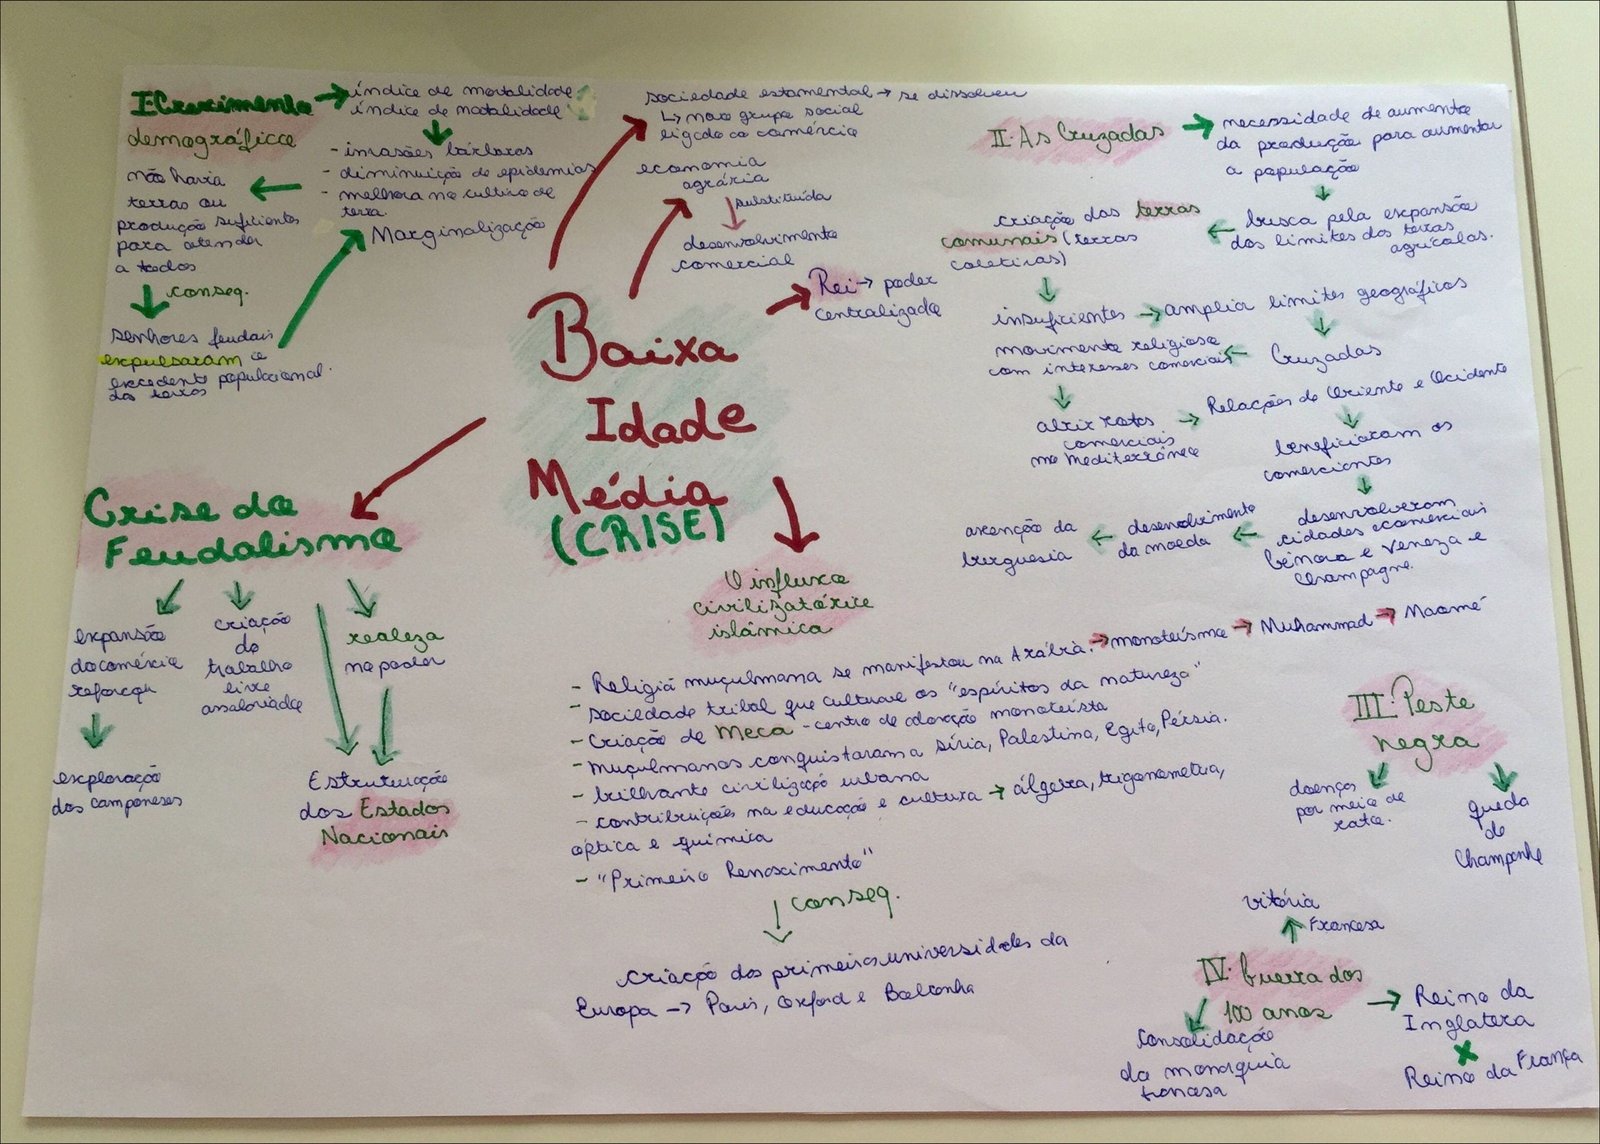 I-Crescimento
demográfico
→ índice de mortalidade
índice de natalidade
- invasões bárbaras
- diminuição de epidemias
- melhora no cultivo de
terra.
não havia
terras ou
produção suficientes
para atender
a todos
conseq.
senhores feudais
expulsaram o
excedente populacional
das terras
Marginalização
sociedade estamental → se dissolveu
↳ novo grupo social
ligado ao comércio
economia
agrária
substituída
desenvolvimento
comercial
Rei → poder
centralizado
Baixa
Idade
Média
(CRISE)
II-As Cruzadas
→ necessidade de aumento
da produção para aumentar
a população
busca pela expansão
dos limites das terras
agrícolas.
criação das terras
comunais (terras
coletivas)
insuficientes → amplia limites geográficos
Cruzadas
movimento religioso
com interesses comerciais
abrir rotas
comerciais
no mediterrâneo
→ Relações do Oriente e Ocidente
beneficiaram os
comerciantes
desenvolveram
cidades comerciais
Gênova e Veneza e
Champagne.
desenvolvimento
da moeda
ascenção da
burguesia
Crise do
Feudalismo
expansão
do comércio
reforçou
exploração
dos camponeses
criação
do
trabalho
livre
assalariado
realeza
no poder
Estruturação
dos Estados
Nacionais
O influxo
civilizatório
islâmico
- Religiã muçulmana se manifestou na Arábia. → monoteísmo → Muhammad → Maomé
- sociedade tribal que cultuava os "espíritos da natureza"
- Criação de Meca - centro de adoração monoteísta
- muçulmanos conquistaram a Síria, Palestina, Egito, Pérsia.
- brilhante civilização urbana
- contribuições na educação e cultura → álgebra, trigonometria,
óptica e química
- "Primeiro Renascimento"
conseq.
criação das primeiras universidades da
Europa → Paris, Oxford e Bolonha
III-Peste
negra
doenças
por meio de
ratos.
queda
de
Champanhe
vitória
Francesa
IV-Guerra dos
100 anos
→ Reino da
Inglatera
x
Reino da França
Consolidação
da monarquia
francesa